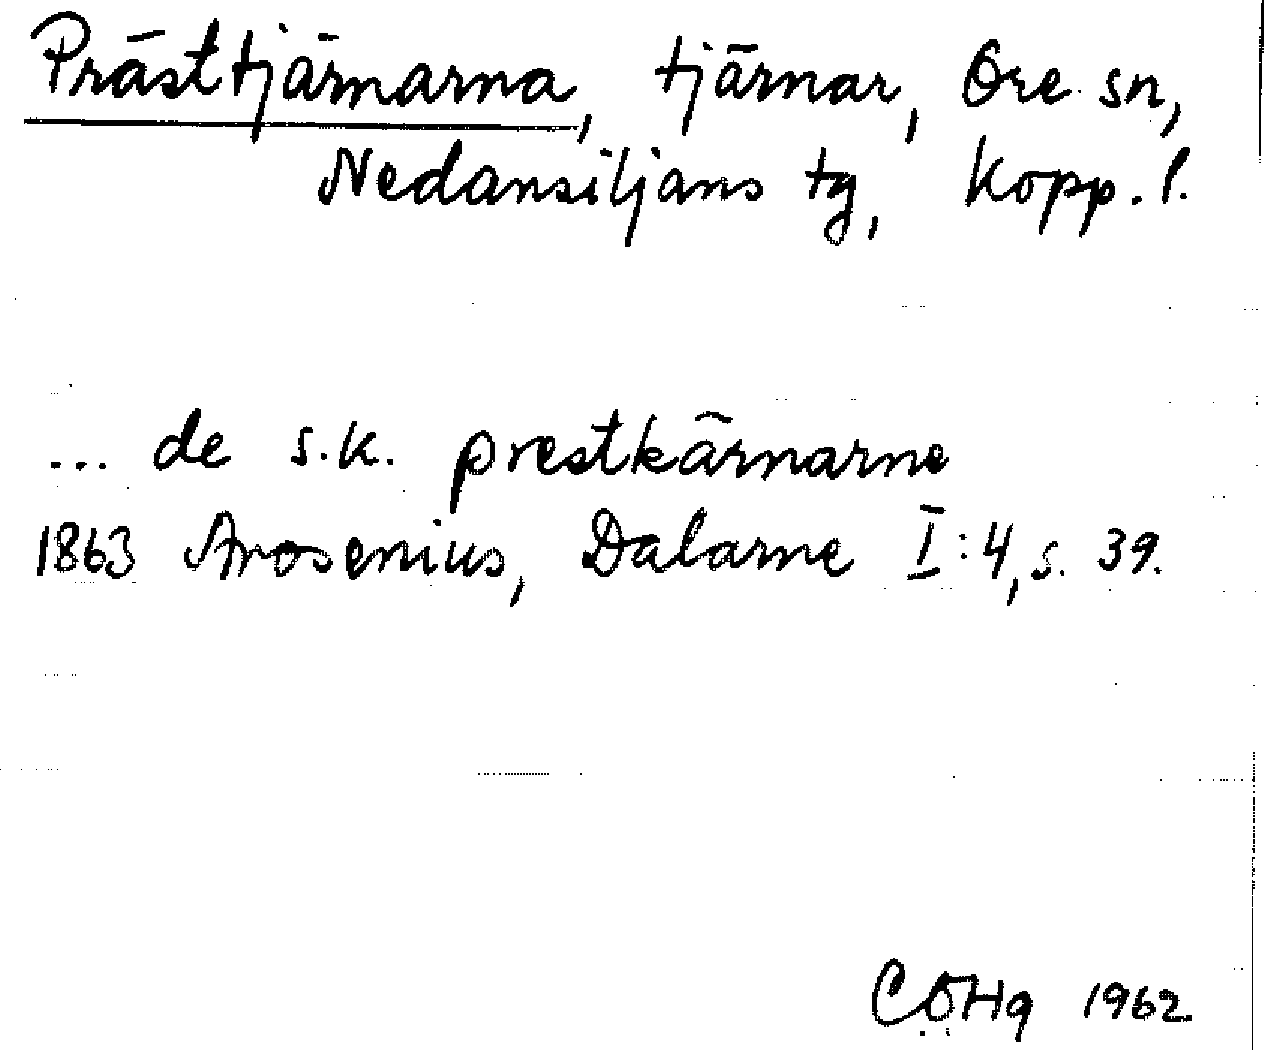 Prästtjärnarna, tjärnar, Ore sn,
Nedansiljans tg, Kopp. l.
... de s.k. prestkärnarne
1863 Arosenius, Dalarne I:4, s. 39.
CÖHg 1962